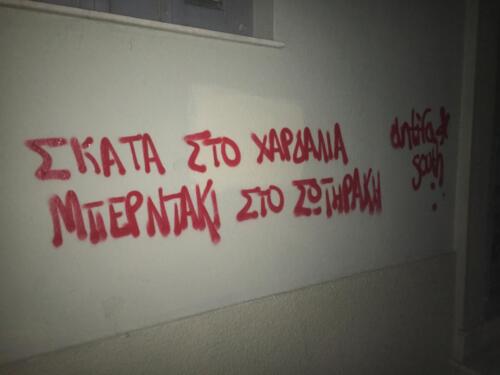 ΣΚΑΤΑ ΣΤΟ ΧΑΡΔΑΛΙΑ
ΜΠΕΡΝΤΑΚΙ ΣΤΟ ΣΩΤΗΡΑΚΗ
antifa*
south